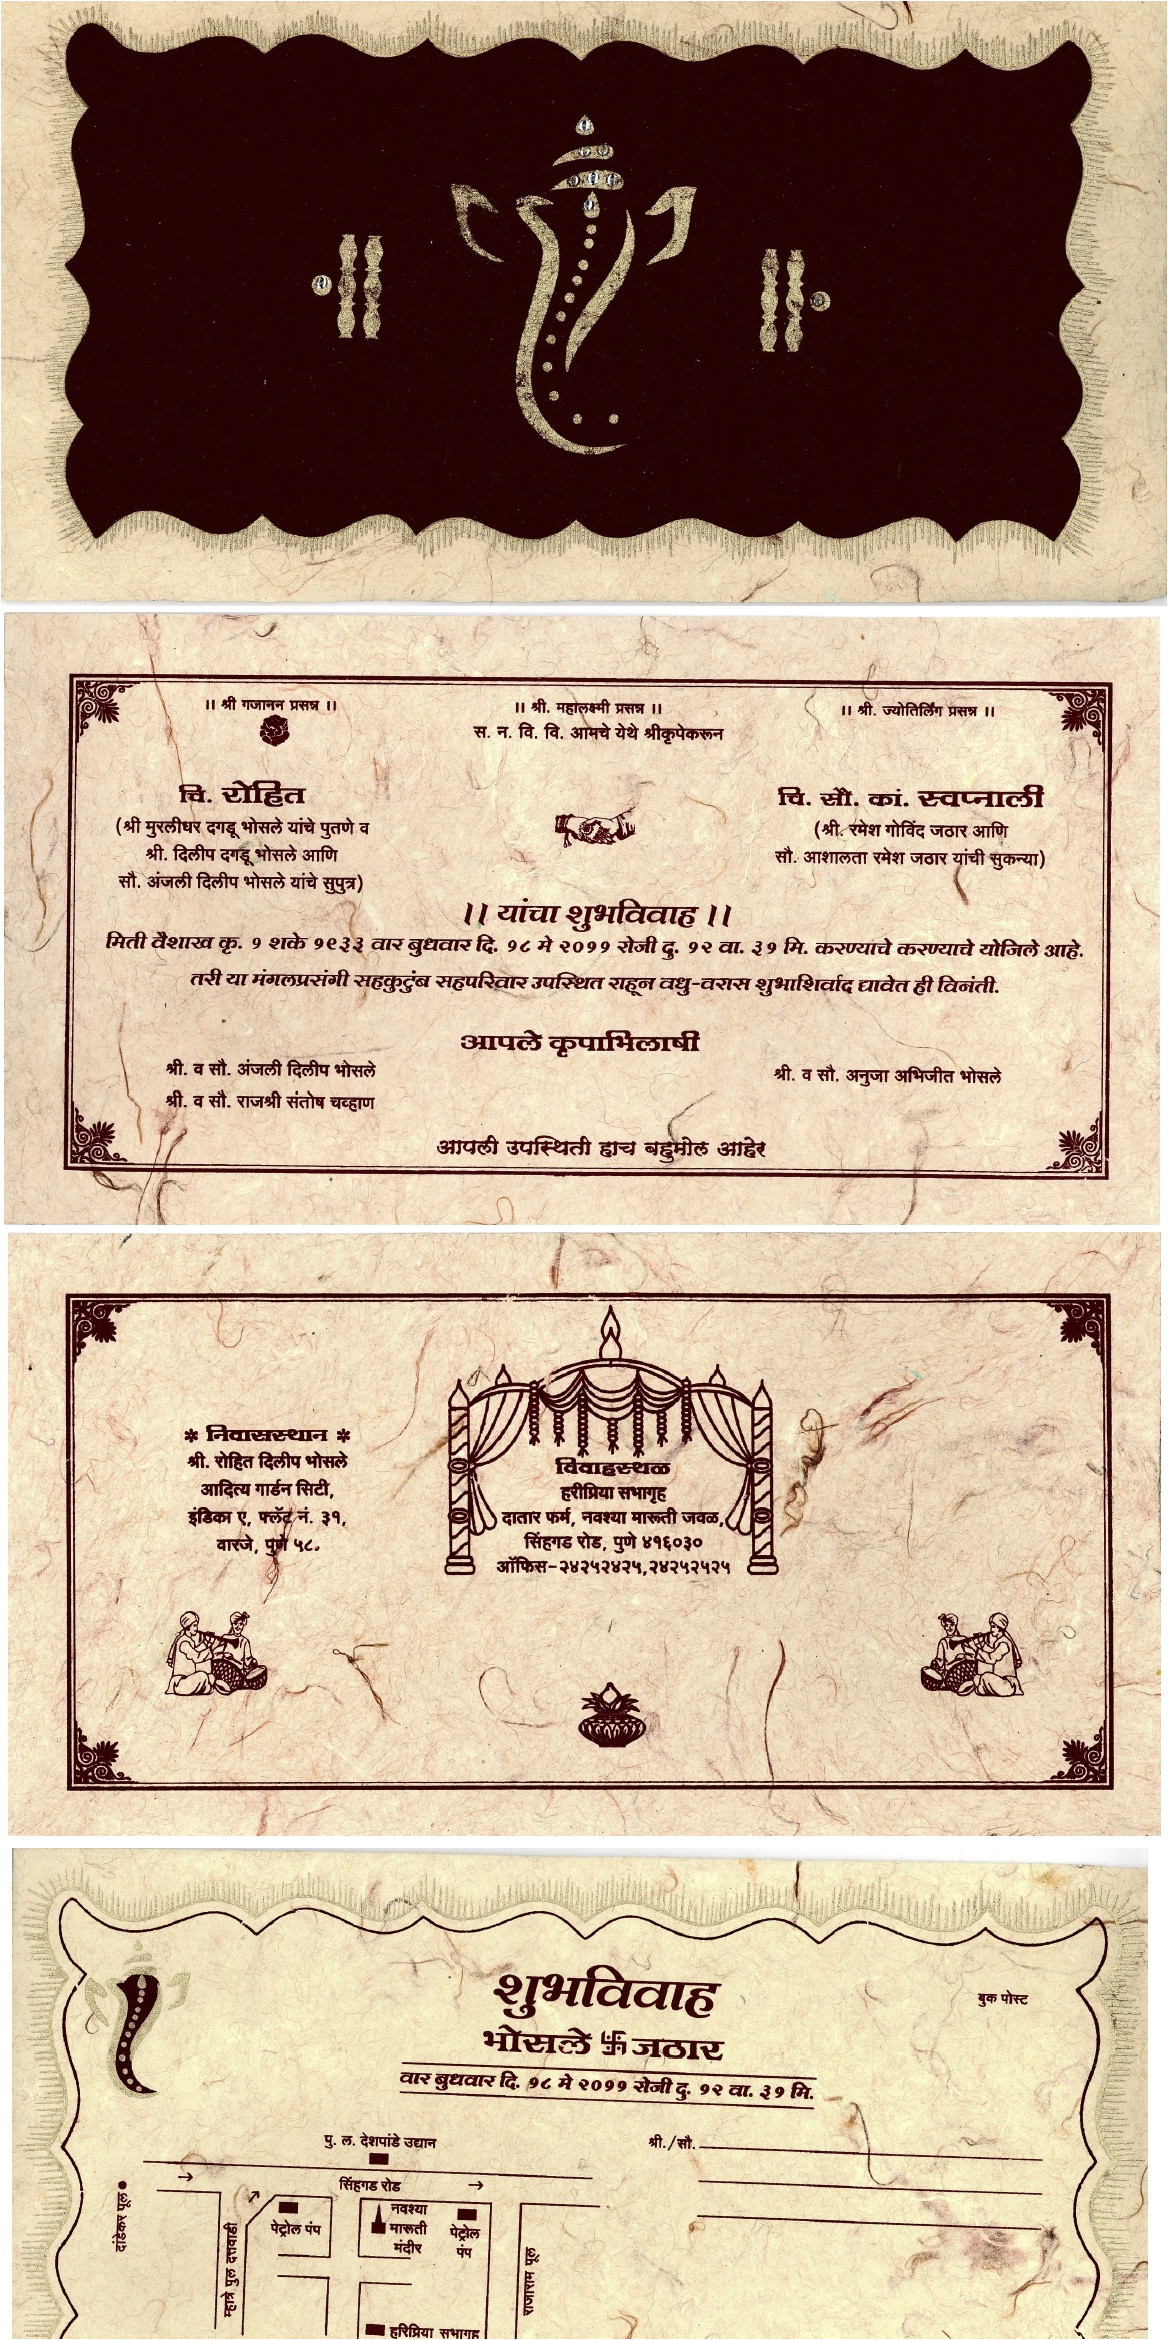 ।। श्री गजानन प्रसन्न ।।
।। श्री. महालक्ष्मी प्रसन्न ।।
।। श्री. ज्योतिर्लिंग प्रसन्न ।।
स. न. वि. वि. आमचे येथे श्रीकृपेकरून
चि. रोहित
(श्री मुरलीधर दगडू भोसले यांचे पुतणे व
श्री. दिलीप दगडू भोसले आणि
सौ. अंजली दिलीप भोसले यांचे सुपुत्र)
चि. सौ. कां. स्वप्नाली
(श्री. रमेश गोविंद जठार आणि
सौ. आशालता रमेश जठार यांची सुकन्या)
।। यांचा शुभविवाह ।।
मिती वैशाख कृ. १ शके १९३३ वार बुधवार दि. १८ मे २०११ रोजी दु. १२ वा. ३१ मि. करण्याचे करण्याचे योजिले आहे.
तरी या मंगलप्रसंगी सहकुटुंब सहपरिवार उपस्थित राहून वधु-वरास शुभाशिर्वाद द्यावेत ही विनंती.
आपले कृपाभिलाषी
श्री. व सौ. अंजली दिलीप भोसले
श्री. व सौ. राजश्री संतोष चव्हाण
श्री. व सौ. अनुजा अभिजीत भोसले
आपली उपस्थिती हाच बहुमोल आहेर
* निवासस्थान *
श्री. रोहित दिलीप भोसले
आदित्य गार्डन सिटी,
इंडिका ए, फ्लॅट नं. ३१,
वारजे, पुणे ५८.
विवाहस्थळ
हरीप्रिया सभागृह
दातार फर्म, नवश्या मारूती जवळ,
सिंहगड रोड, पुणे ४१६०३०
ऑफिस-२४२५२४२५,२४२५२५२५
शुभविवाह
बुक पोस्ट
भोसले 卐 जठार
वार बुधवार दि. १८ मे २०११ रोजी दु. १२ वा. ३१ मि.
पु. ल. देशपांडे उद्यान
श्री./सौ.
सिंहगड रोड
दांडेकर पूल
म्हात्रे पुल दत्तवाडी
पेट्रोल पंप
नवश्या
मारूती
मंदीर
पेट्रोल
पंप
राजाराम पूल
हरिप्रिया सभागृह